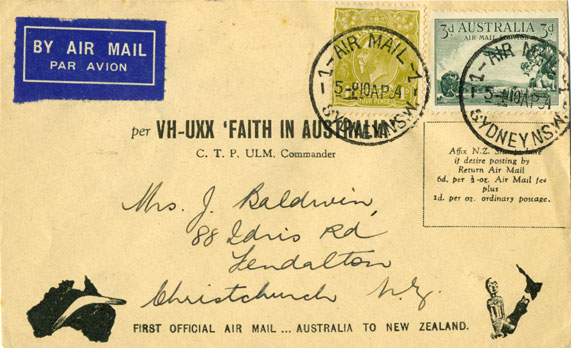 BY AIR MAIL
PAR AVION
3d AUSTRALIA 3d
AIR MAIL
1 - AIR MAIL - 1
SYDNEY N.S.W.
1 - AIR MAIL - 1
SYDNEY N.S.W.
per VH-UXX 'FAITH IN AUSTRALIA'
C. T. P. ULM, Commander
Affix N.Z. Stamps here
if desire posting by
Return Air Mail
6d. per ½-oz. Air Mail fee
plus
1d. per oz. ordinary postage.
Mrs. J. Baldwin,
88 Idris Rd
Fendalton
Christchurch N.Z.
FIRST OFFICIAL AIR MAIL ... AUSTRALIA TO NEW ZEALAND.